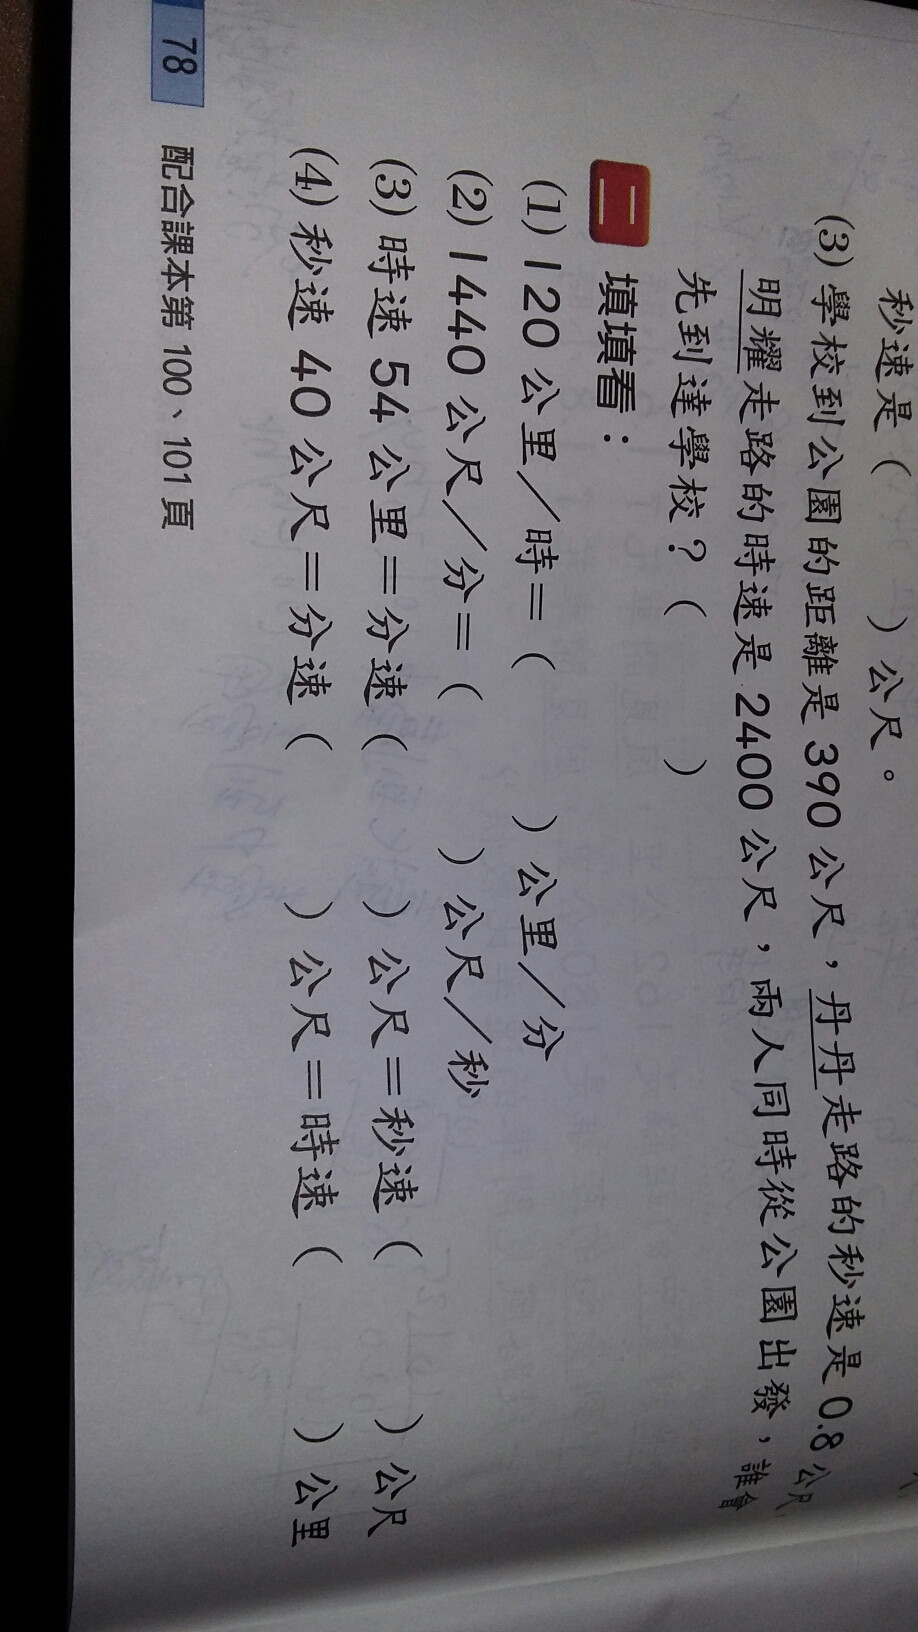 秒速是（　　）公尺。
(3) 學校到公園的距離是 390 公尺，丹丹走路的秒速是 0.8 公尺，
明耀走路的時速是 2400 公尺，兩人同時從公園出發，誰會
先到達學校？（　　）
二 填填看：
(1) 120 公里／時＝（　　）公里／分
(2) 1440 公尺／分＝（　　）公尺／秒
(3) 時速 54 公里＝分速（　　）公尺＝秒速（　　）公尺
(4) 秒速 40 公尺＝分速（　　）公尺＝時速（　　）公里
78 配合課本第 100、101 頁